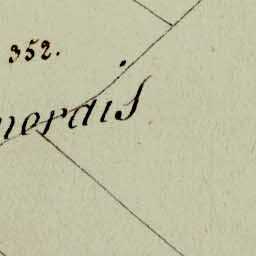 352.
nerais